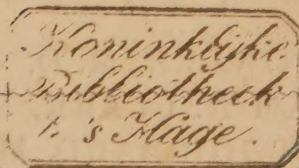 Koninklijke
Bibliotheek
t. 's Hage.